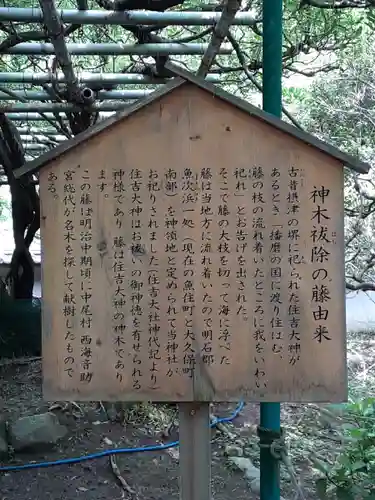 神木祓除の藤由来
古昔摂津の堺に祀られた住吉大神が
あるとき「播磨の国に渡り住はむ
藤の枝の流れ着いたところに我をいわい
祀れ」とお告げを出された。
そこで藤の大枝を切って海に浮べた
藤は当地方に流れ着いたので明石郡
魚次浜一処(現在の魚住町と大久保町
南部)を神領地と定められて当神社が
お祀りされました(住吉大社神代記より)
住吉大神はお祓いの御神徳を有せられる
神様であり 藤は住吉大神の神木であり
ます。
この藤は明治中期頃に中尾村 西海音助
宮総代が名木を探して献樹したもので
ある。